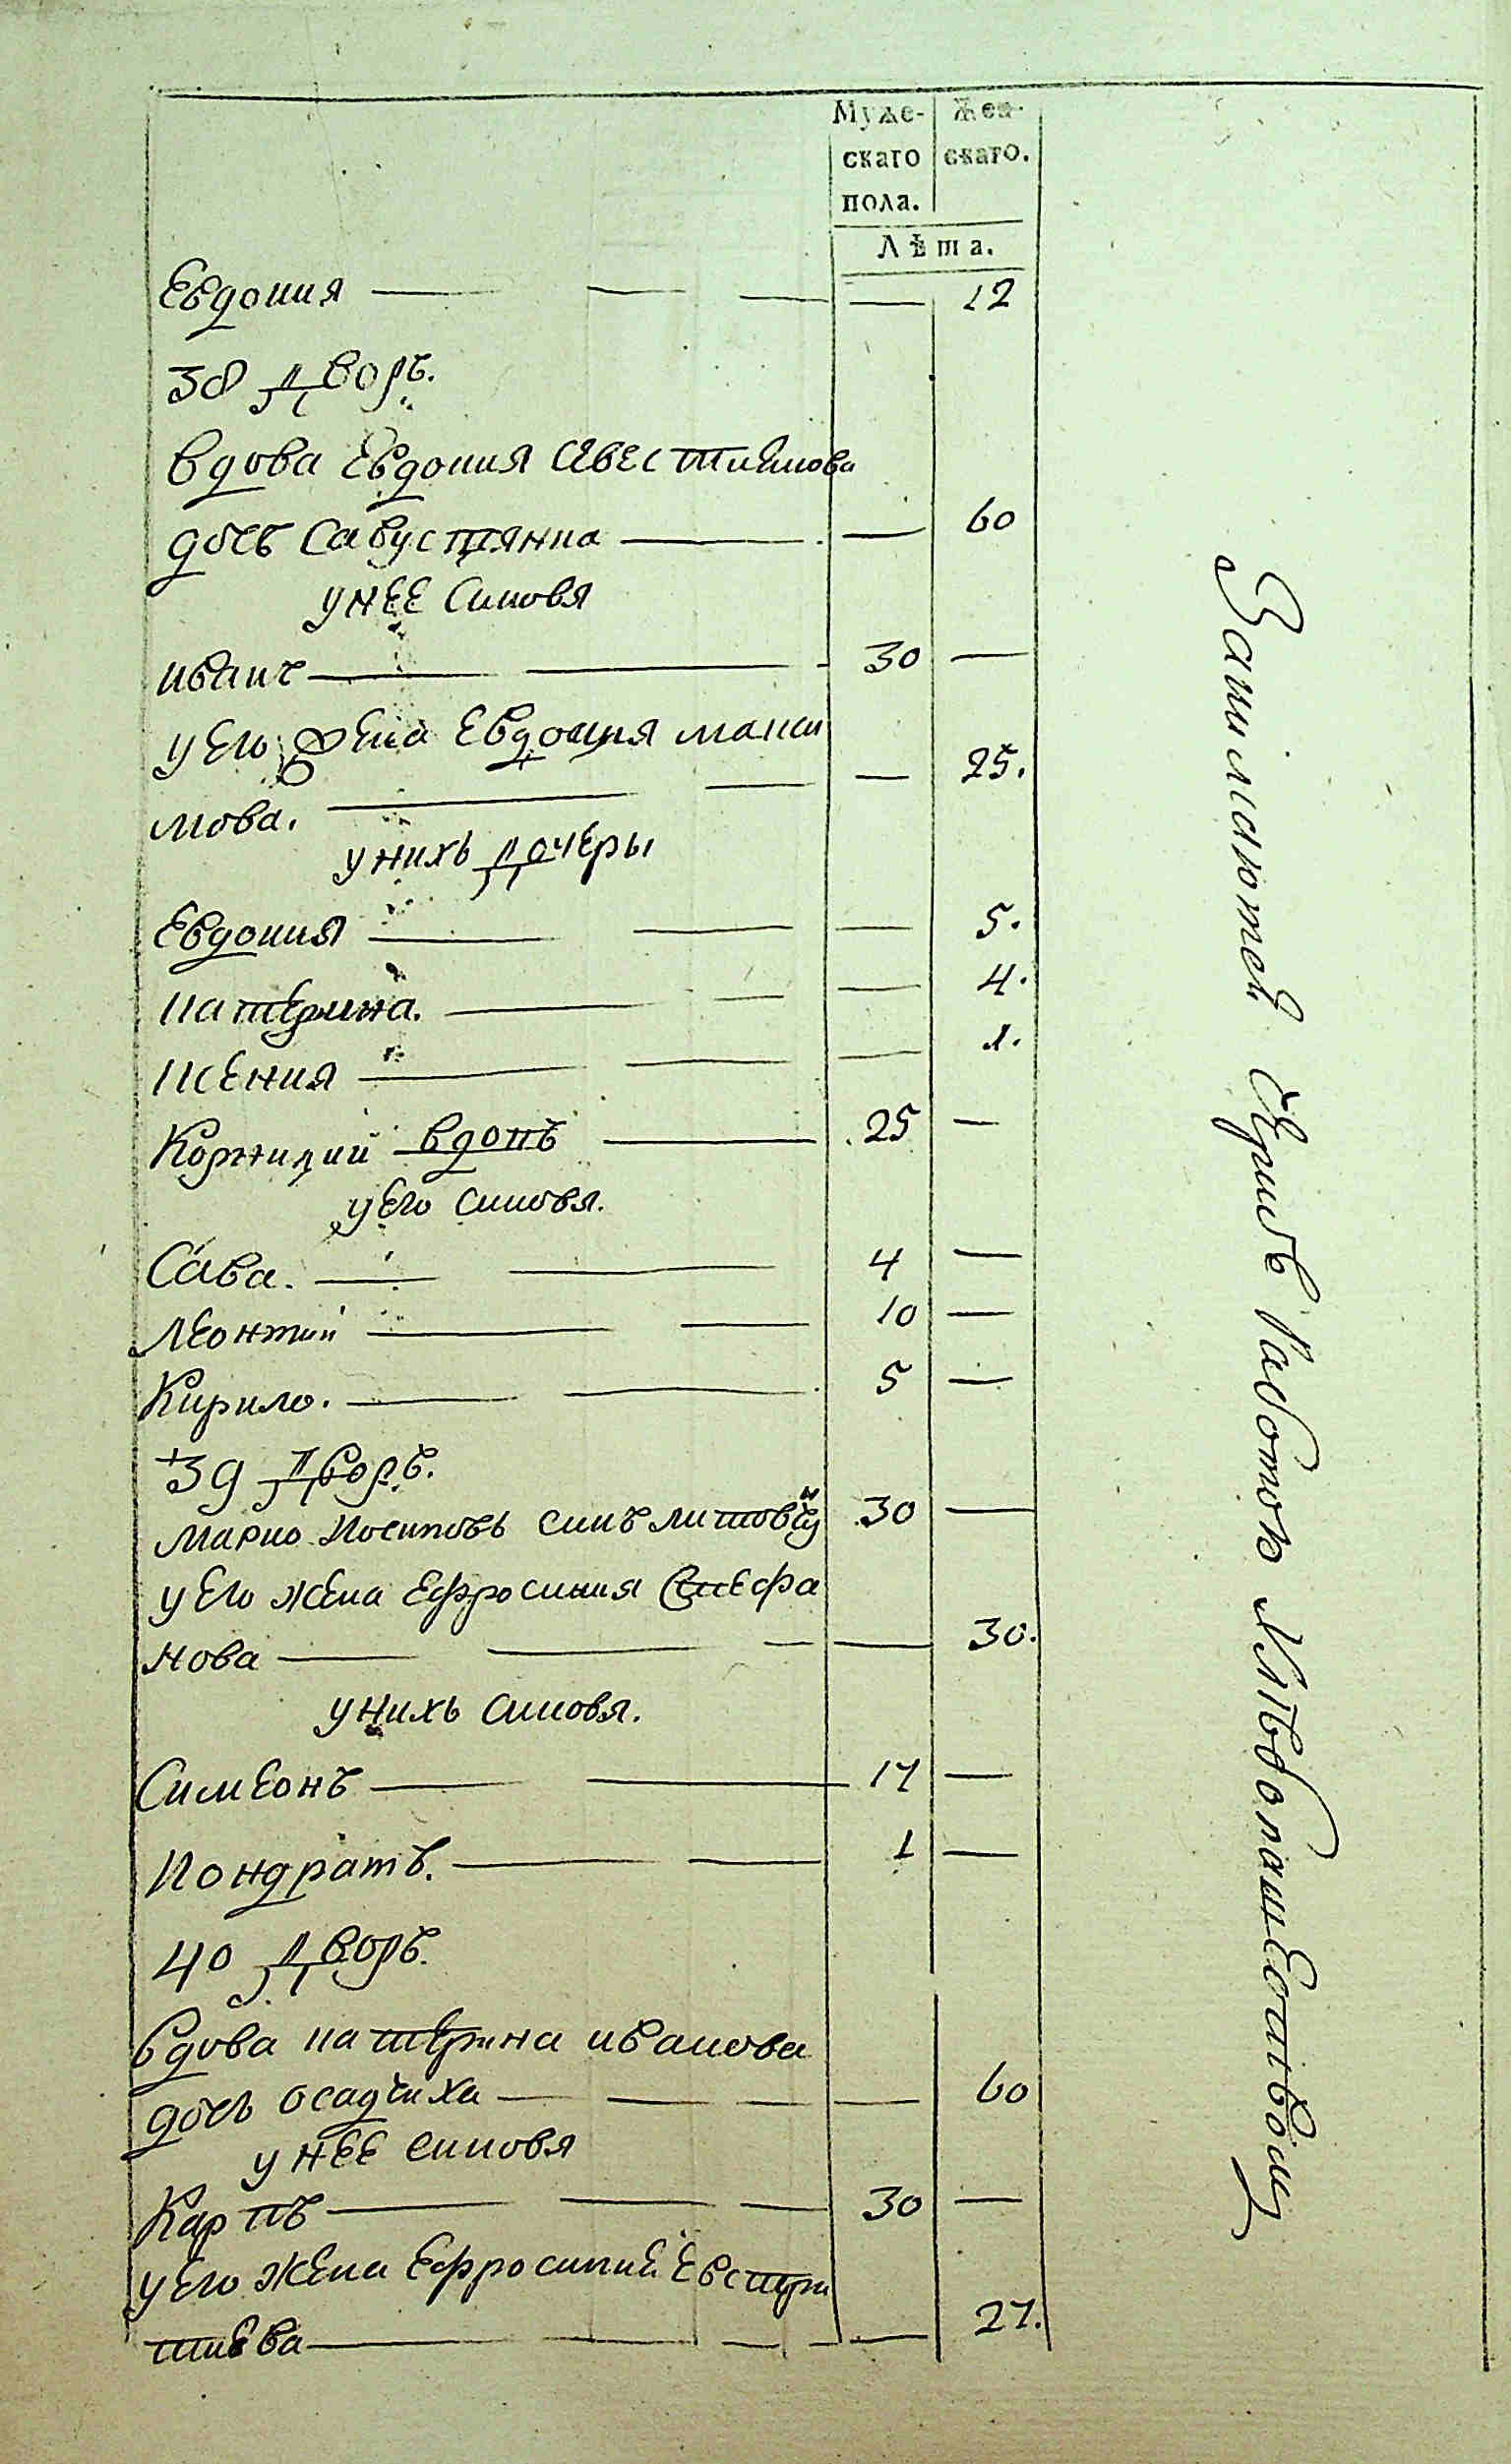 Муже- Жен-
скаго скаго.
пола.
Лѣта.
Евдокия — — — — 12
38 Дворъ.
вдова Евдокия
дочь — — 60
у неE синовя
иванъ — — 30 —
у Его жена Евдокия макси
мова. — — — 25.
у нихъ дочеры
Евдокия — — — 5.
катерина. — — — 4.
ксения — — — 1.
Корнилий вдовъ — 25 —
у Его синовя.
Сава. — — 4 —
леонтий — — 10 —
Кирило. — — 5 —
39 Дворъ.
марко Иосиповъ синъ 30 —
у Его жена Ефросиния Стефа
нова — — — — 30.
у нихъ синовя.
Симеонъ — — 17 —
кондратъ. — — 1 —
40 Дворъ.
вдова катерина иванова
дочь осадчиха — — — — 60
у неE синовя
Карпъ — — — 30 —
у Его жена Ефросиния Евстра
тиева — — — — 27.
Занимаются работою хлѣбопашественною